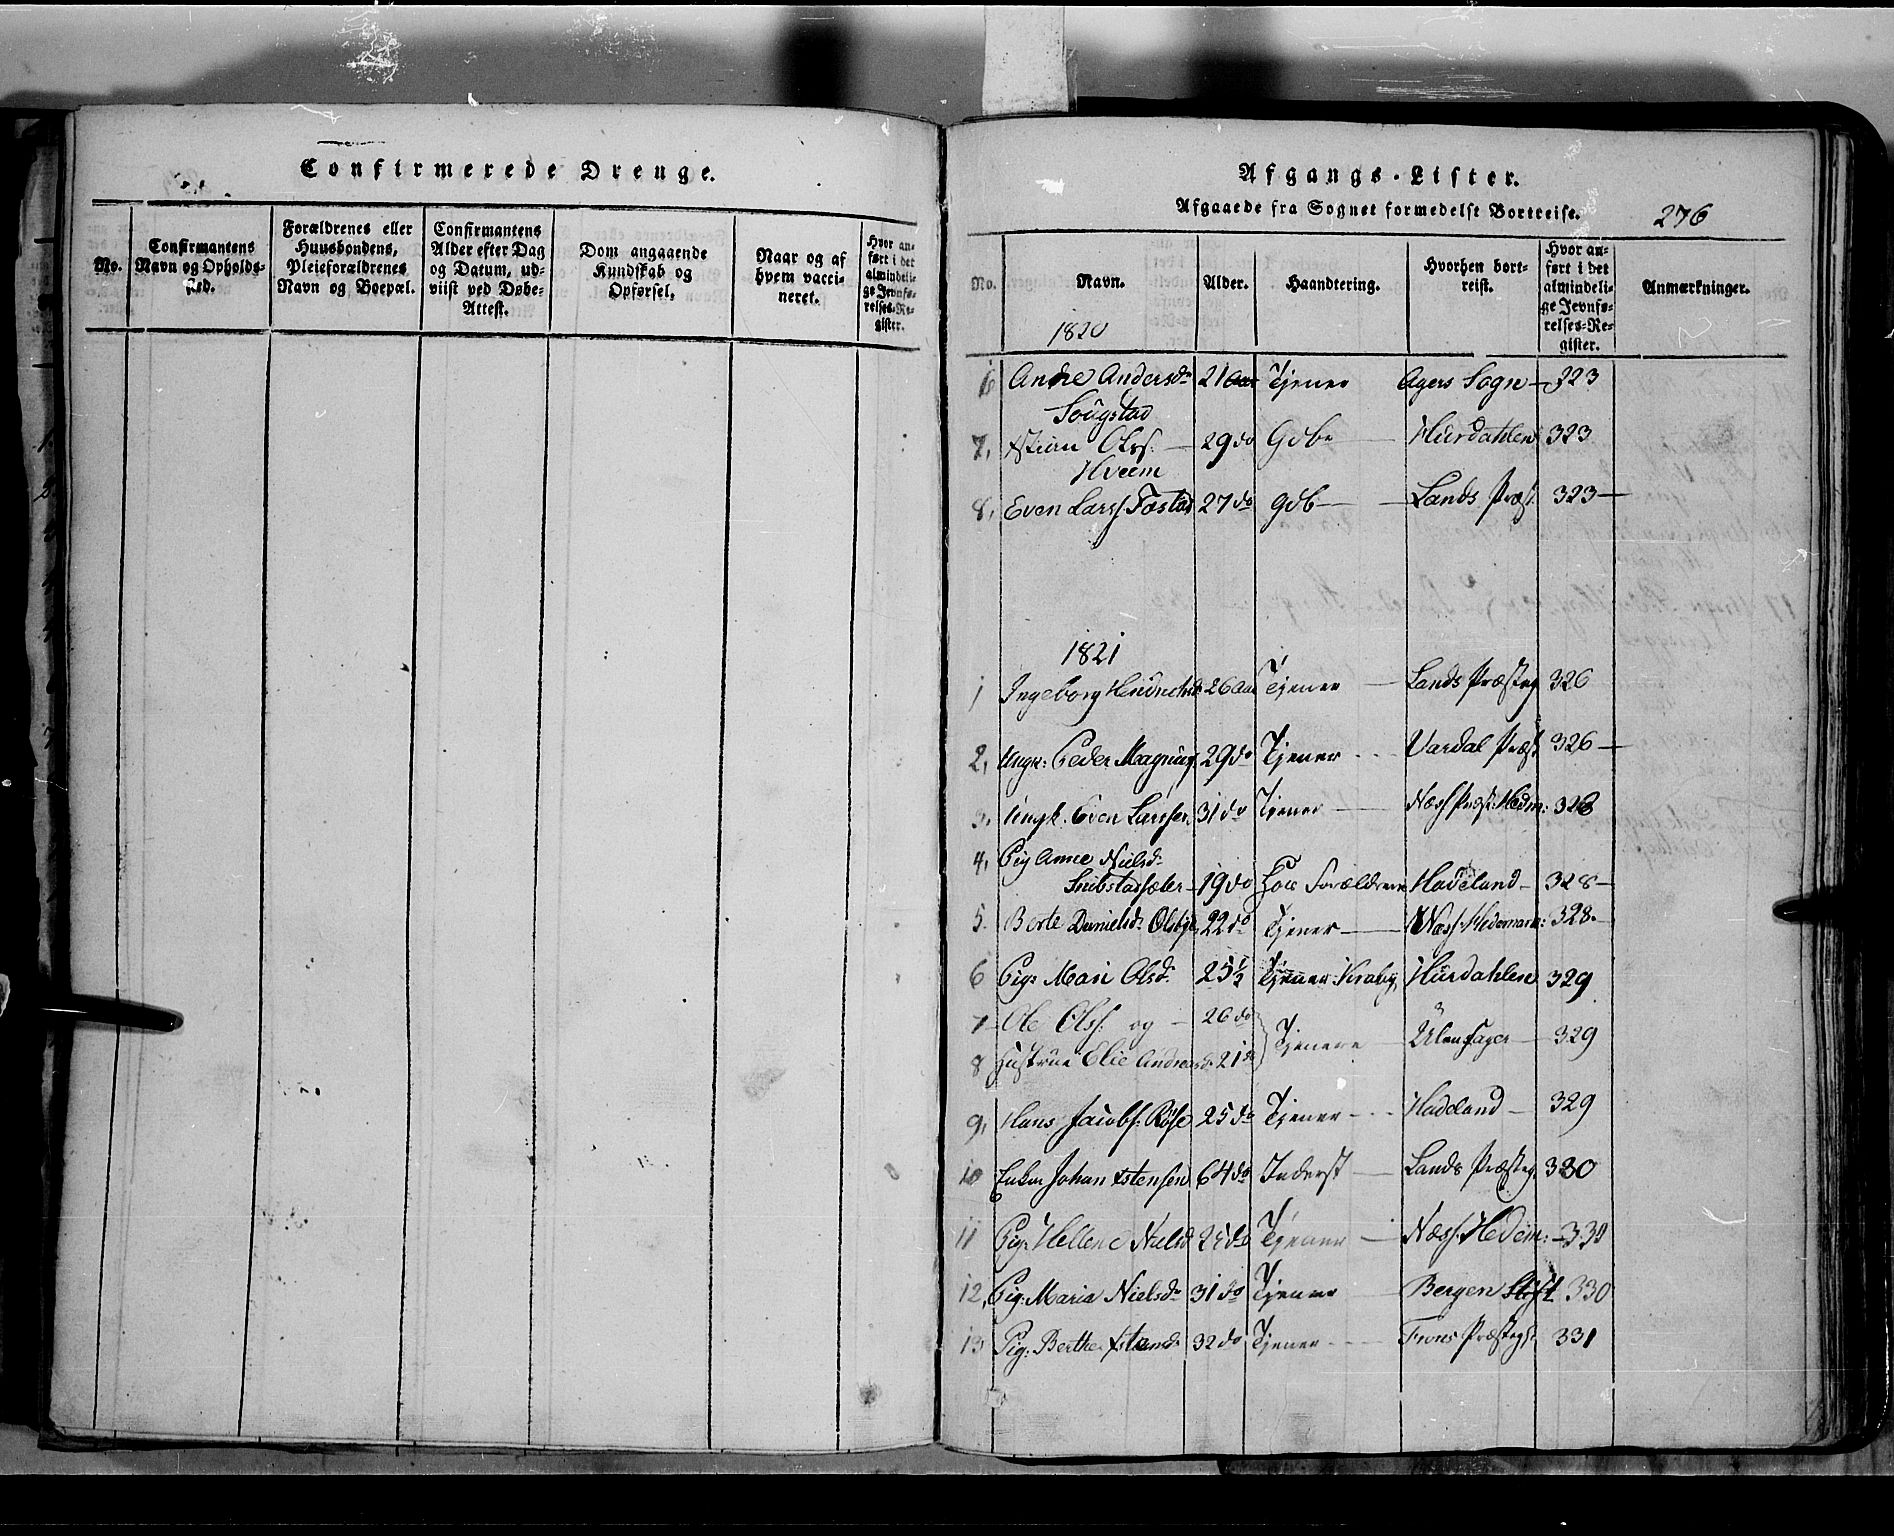 Confirmerede Drenge.
No.
Confirmantens Navn og Opholds-sted.
Forældrenes eller Huusbondens, Pleieforældrenes Navn og Boepæl.
Confirmantens Alder efter Dag og Datum, ud-viist ved Døbe-Attest.
Dom angaaende Kundskab og Opførsel.
Naar og af hvem vacci-neret.
Hvor an-ført i det almindeli-ge Jevnfø-relses-Re-gister.
Afgangs-Lister.
Afgaaede fra Sognet formedelst Bortreise.
276
No.
Navn.
Alder.
Haandtering.
Hvorhen bort-reist.
Hvor an-ført i det almindeli-ge Jevnfø-relses-Re-gister.
Anmærkninger.
1820
6 Andersdr 21 Aar Tjener Agers Sogn - 323
Sougstad
7, Olss. - 29 do Gdbr Hurdahlen 323
Hveem
8, Even Larss. Tostad 27 do gdb - Lands Præst 323 -
1821
1 Ingeborg 26 Aar Tjener - Lands Præsteg 326
2, Ungk: Peder 29 do Tjener - Vardal Præst 326 -
3, Ungk. Even Larssen 31 do Tjener - Næss Præst: Hedm: 328
4, Pig Anne Nielsd.
- 19 do hos Forældrene Hadeland - 328 -
5. Danielsd. Olsbye 22 do Tjener - Næss. Hedemark: 328.
6 Pig: Mari Olsd. 25 1/2 Tjener Hurdahlen 329
7 Ole Olss. og - 26 do
Tjenere - Ulensager - 329
8 Hustrue Elie Andreasd. 21 do
9, Hans Jacobs. 25 do Tjener - Hadeland - 329
10 Enkm Johan 64 do Inderst - Lands Præsteg. 330
11 Pig: Hellene Nielsd do Tjener - Næss. Hedem: - 330
12, Pig: Maria Nielsdr 31 do Tjener - Bergen Stift 330
13 Pig: Berthe 32 do Tjener - Frons Præstegd. 331